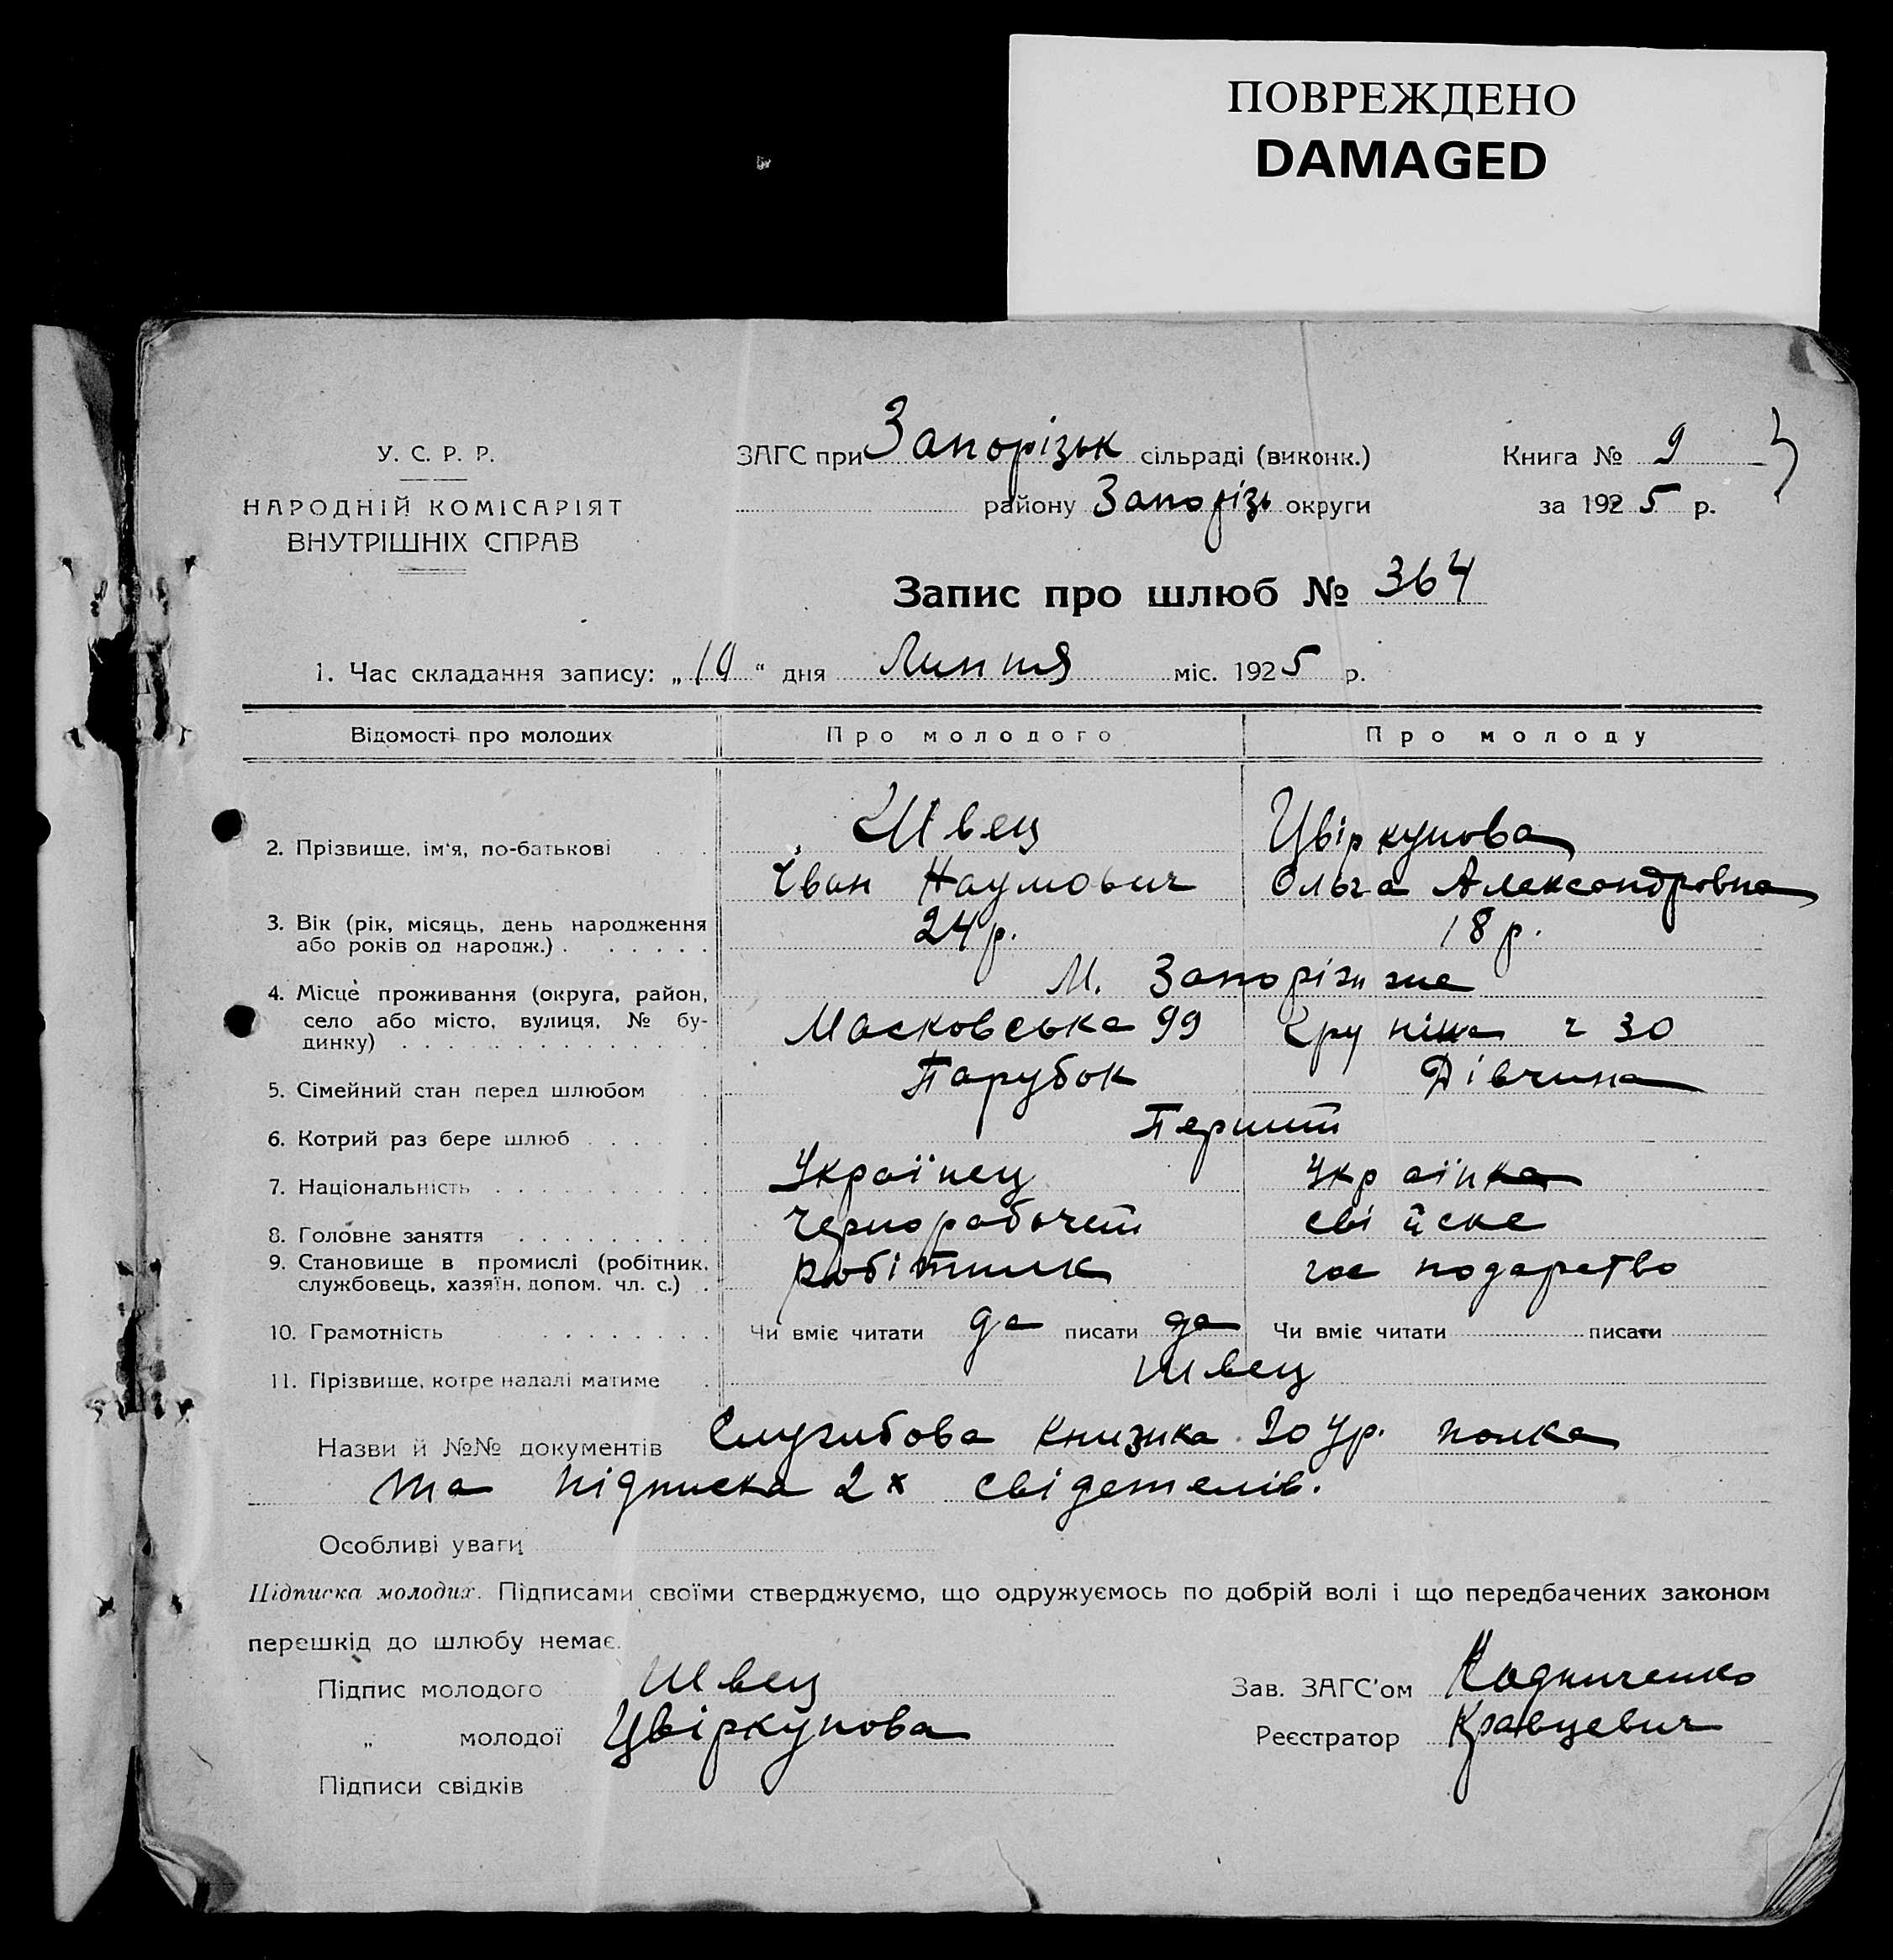 ПОВРЕЖДЕНО
DAMAGED
У. С. Р. Р.
НАРОДНІЙ КОМІСАРІЯТ
ВНУТРІШНІХ СПРАВ
ЗАГС при Запорізьк сільраді (виконк.)
району Запорізь округи
Книга № 9
за 1925 р.
Запис про шлюб № 364
1. Час складання запису: „19“ дня Липня міс. 1925 р.
Відомості про молодих Про молодого Про молоду
2. Прізвище, ім'я, по-батькові Швец Цвіркунова
Іван Наумович Ольга Александровна
3. Вік (рік, місяць, день народження 24 р. 18 р.
або років од народж.)
4. Місце проживання (округа, район, М. Запоріжже
село або місто, вулиця, № бу- Московська 99 30
динку)
5. Сімейний стан перед шлюбом Парубок Дівчина
6. Котрий раз бере шлюб Перший
7. Національність Українец Українка
8. Головне заняття Чернорабочей свійске
9. Становище в промислі (робітник, робітник господарство
службовець, хазяїн, допом. чл. с.)
10. Грамотність Чи вміє читати да писати да Чи вміє читати писати
11. Прізвище, котре надалі матиме Швец
Назви й №№ документів Служибова книжка 20 полка
та підписка 2х свідетелів.
Особливі уваги
Підписка молодих. Підписами своїми стверджуємо, що одружуємось по добрій волі і що передбачених законом
перешкід до шлюбу немає.
Підпис молодого Швец Зав. ЗАГС'ом
„ молодої Цвіркунова Реєстратор Кравцевич
Підписи свідків